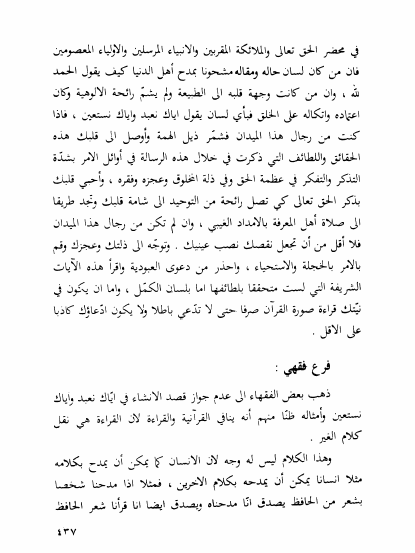 في محضر الحق تعالى والملائكة المقربين والانبياء المرسلين والاولياء المعصومين
فان من كان لسان حاله ومقاله مشحونا بمدح أهل الدنيا كيف يقول الحمد
لله ، وان من كانت وجهة قلبه الى الطبيعة ولم يشمّ رائحة الالوهية وكان
اعتماده واتكاله على الخلق فبأي لسان يقول اياك نعبد واياك نستعين ، فاذا
كنت من رجال هذا الميدان فشمّر ذيل الهمة وأوصل الى قلبك هذه
الحقائق واللطائف التي ذكرت في خلال هذه الرسالة في أوائل الامر بشدّة
التذكر والتفكر في عظمة الحق وفي ذلة المخلوق وعجزه وفقره ، وأحيي قلبك
بذكر الحق تعالى كي تصل رائحة من التوحيد الى شامة قلبك وتجد طريقا
الى صلاة أهل المعرفة بالامداد الغيبي ، وان لم تكن من رجال هذا الميدان
فلا أقل من أن تجعل نقصك نصب عينيك . وتوجّه الى ذلتك وعجزك وقم
بالامر بالخجلة والاستحياء ، واحذر من دعوى العبودية واقرأ هذه الآيات
الشريفة التي لست متحققا بلطائفها اما بلسان الكمّل ، واما ان يكون في
نيّتك قراءة صورة القرآن صرفا حتى لا تدّعي باطلا ولا يكون ادّعاؤك كاذبا
على الاقل .
فرع فقهي :
ذهب بعض الفقهاء الى عدم جواز قصد الانشاء في ايّاك نعبد واياك
نستعين وأمثاله ظنّا منهم أنه ينافي القرآنية والقراءة لان القراءة هي نقل
كلام الغير .
وهذا الكلام ليس له وجه لان الانسان كما يمكن أن يمدح بكلامه
مثلا انسانا يمكن أن يمدحه بكلام الآخرين ، فمثلا اذا مدحنا شخصا
بشعر من الحافظ يصدق انّا مدحناه ويصدق ايضا انا قرأنا شعر الحافظ
٤٣٧